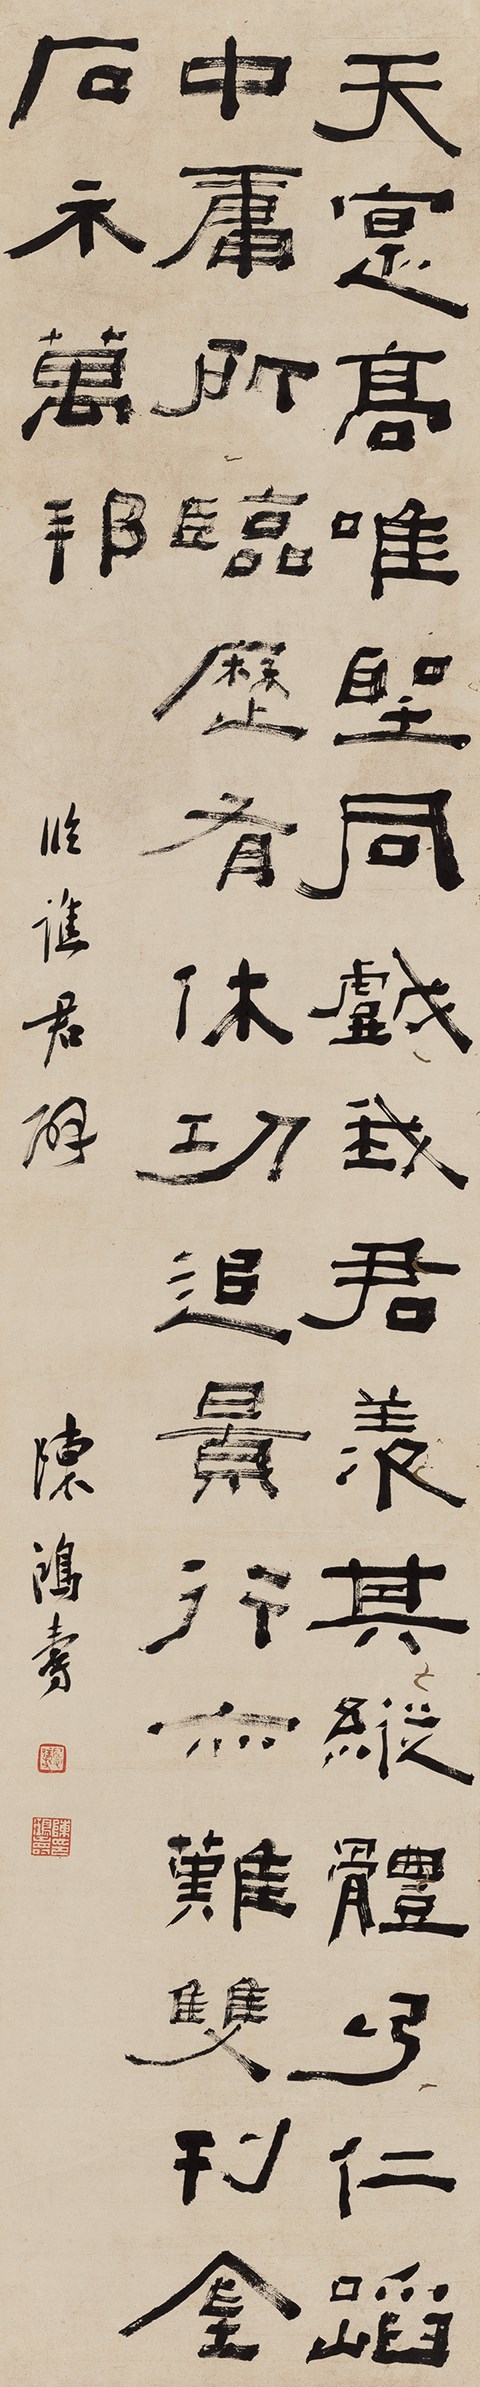 天寔高唯聖同戲我君羨其縱體弘仁蹈
中庸所臨歷有休功追景行亦難雙刊金
石示萬邦
臨譙君碑
陳鴻壽